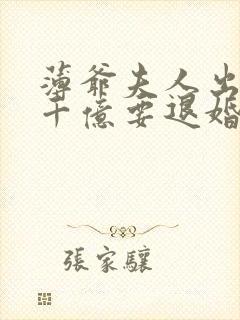 薄爺夫人出
十億要退婚
張家驤